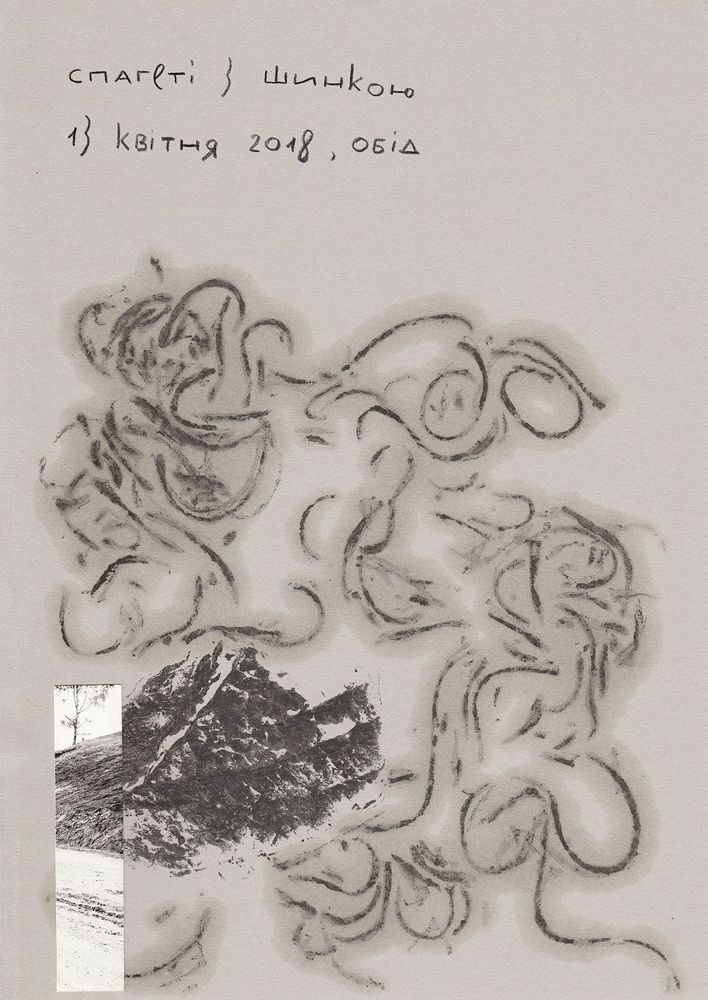 спагеті з шинкою
13 квітня 2018, обід